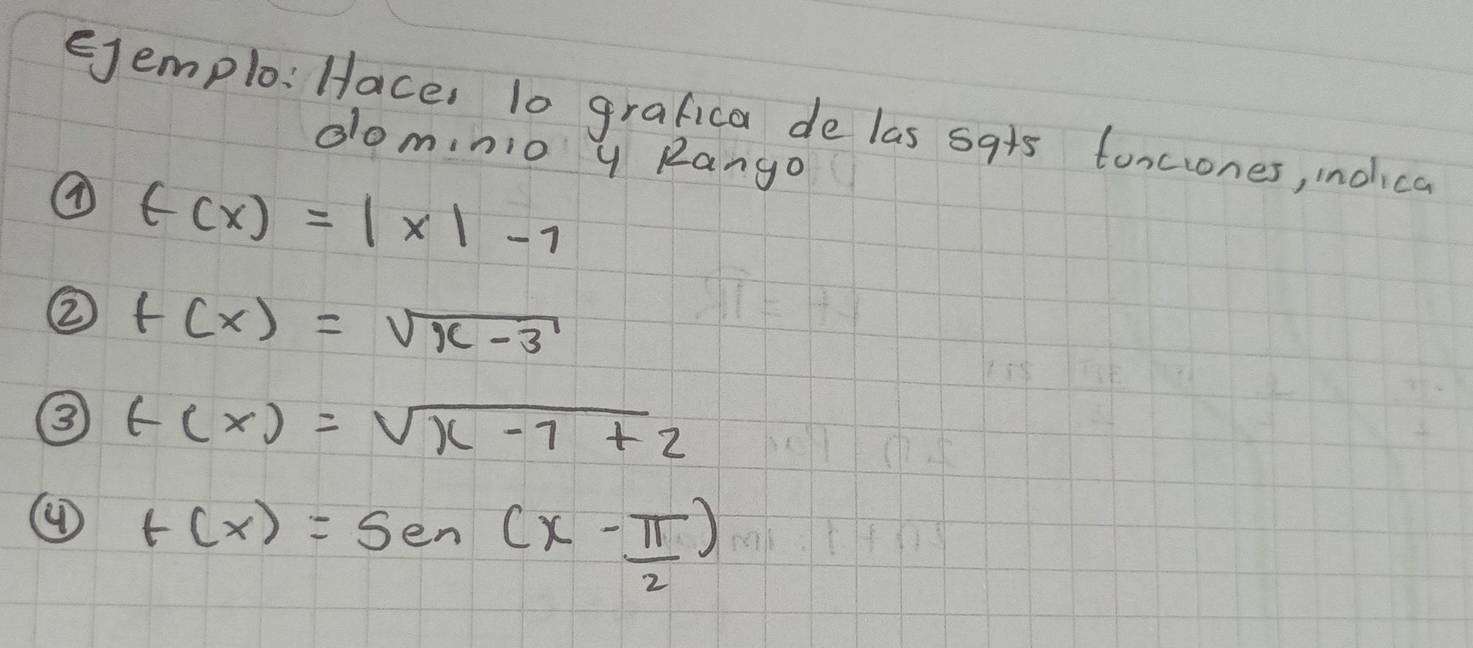 Ejemplo: Hacer la grafica de las sgts funciones, indica
dominio y Rango
① f(x) = |x| - 1
② f(x) = √x - 3
③ f(x) = √x - 1 + 2
④ f(x) = Sen (x - π/2)